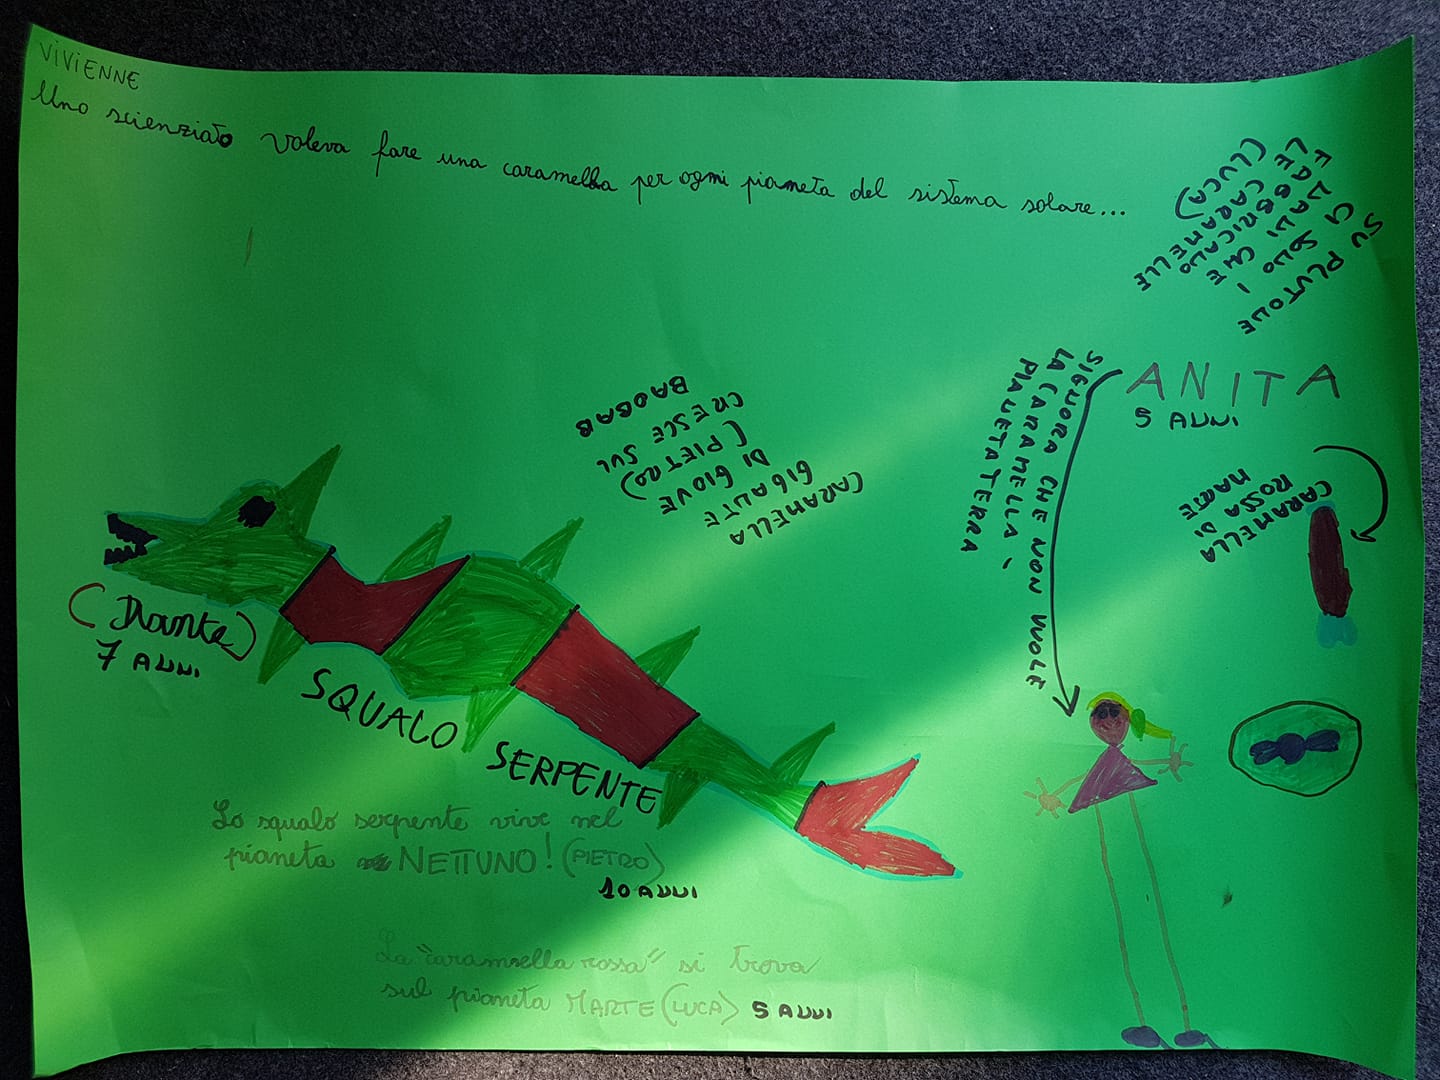 VIVIENNE
Uno scienziato voleva fare una caramella per ogni pianeta del sistema solare...
SU PLUTONE
CI SONO
E UADI I CHE
FABBRICAVO
LE CARAMELLE
(LUCA)
ANITA
5 ANNI
SIGNORA CHE NON VUOLE
LA CARAMELLA,
PIANETA TERRA
CARAMELLA
ROSSA DI
MARTE
CARAMELLA
GIGANTE
DI GIOVE
(PIETRO)
CRESCE SUL
BAOBAB
(Dante)
7 ANNI
SQUALO SERPENTE
Lo squalo serpente vive nel
pianeta NETTUNO! (PIETRO)
10 ANNI
La "caramella rossa" si trova
sul pianeta MARTE (LUCA) 5 ANNI